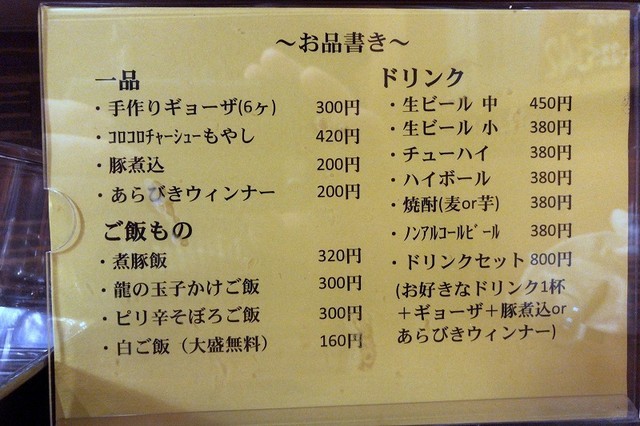 ～お品書き～
一品
・手作りギョーザ(6ヶ) 300円
・ｺﾛｺﾛﾁｬｰｼｭｰもやし 420円
・豚煮込 200円
・あらびきウィンナー 200円
ご飯もの
・煮豚飯 320円
・龍の玉子かけご飯 300円
・ピリ辛そぼろご飯 300円
・白ご飯（大盛無料） 160円
ドリンク
・生ビール 中 450円
・生ビール 小 380円
・チューハイ 380円
・ハイボール 380円
・焼酎(麦or芋) 380円
・ﾉﾝｱﾙｺｰﾙﾋﾞｰﾙ 380円
・ドリンクセット 800円
(お好きなドリンク1杯
＋ギョーザ＋豚煮込or
あらびきウィンナー)